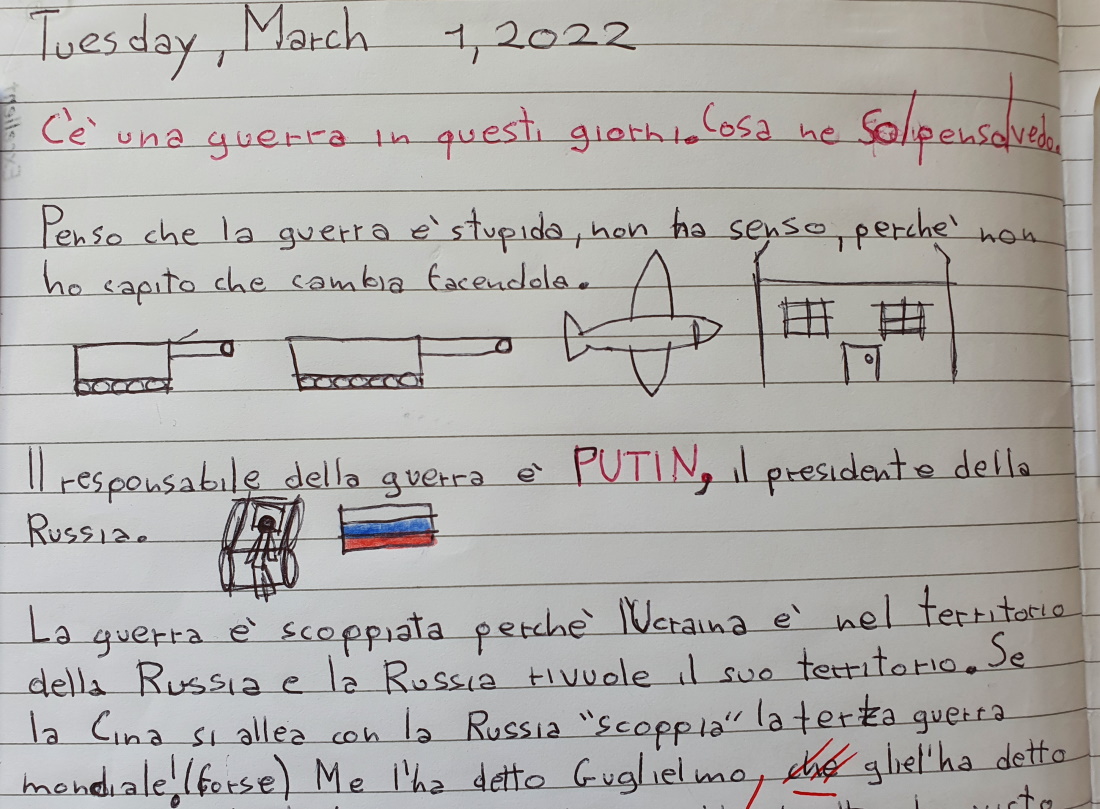 Tuesday, March 1, 2022
C'è una guerra in questi giorni. Cosa ne so/penso/vedo.
Penso che la guerra è stupida, non ha senso, perchè non
ho capito che cambia facendola.
Il responsabile della guerra è PUTIN, il presidente della
Russia.
La guerra è scoppiata perchè l'Ucraina è nel territorio
della Russia e la Russia rivuole il suo territorio. Se
la Cina si allea con la Russia "scoppia" la terza guerra
mondiale! (forse) Me l'ha detto Guglielmo, che gliel'ha detto